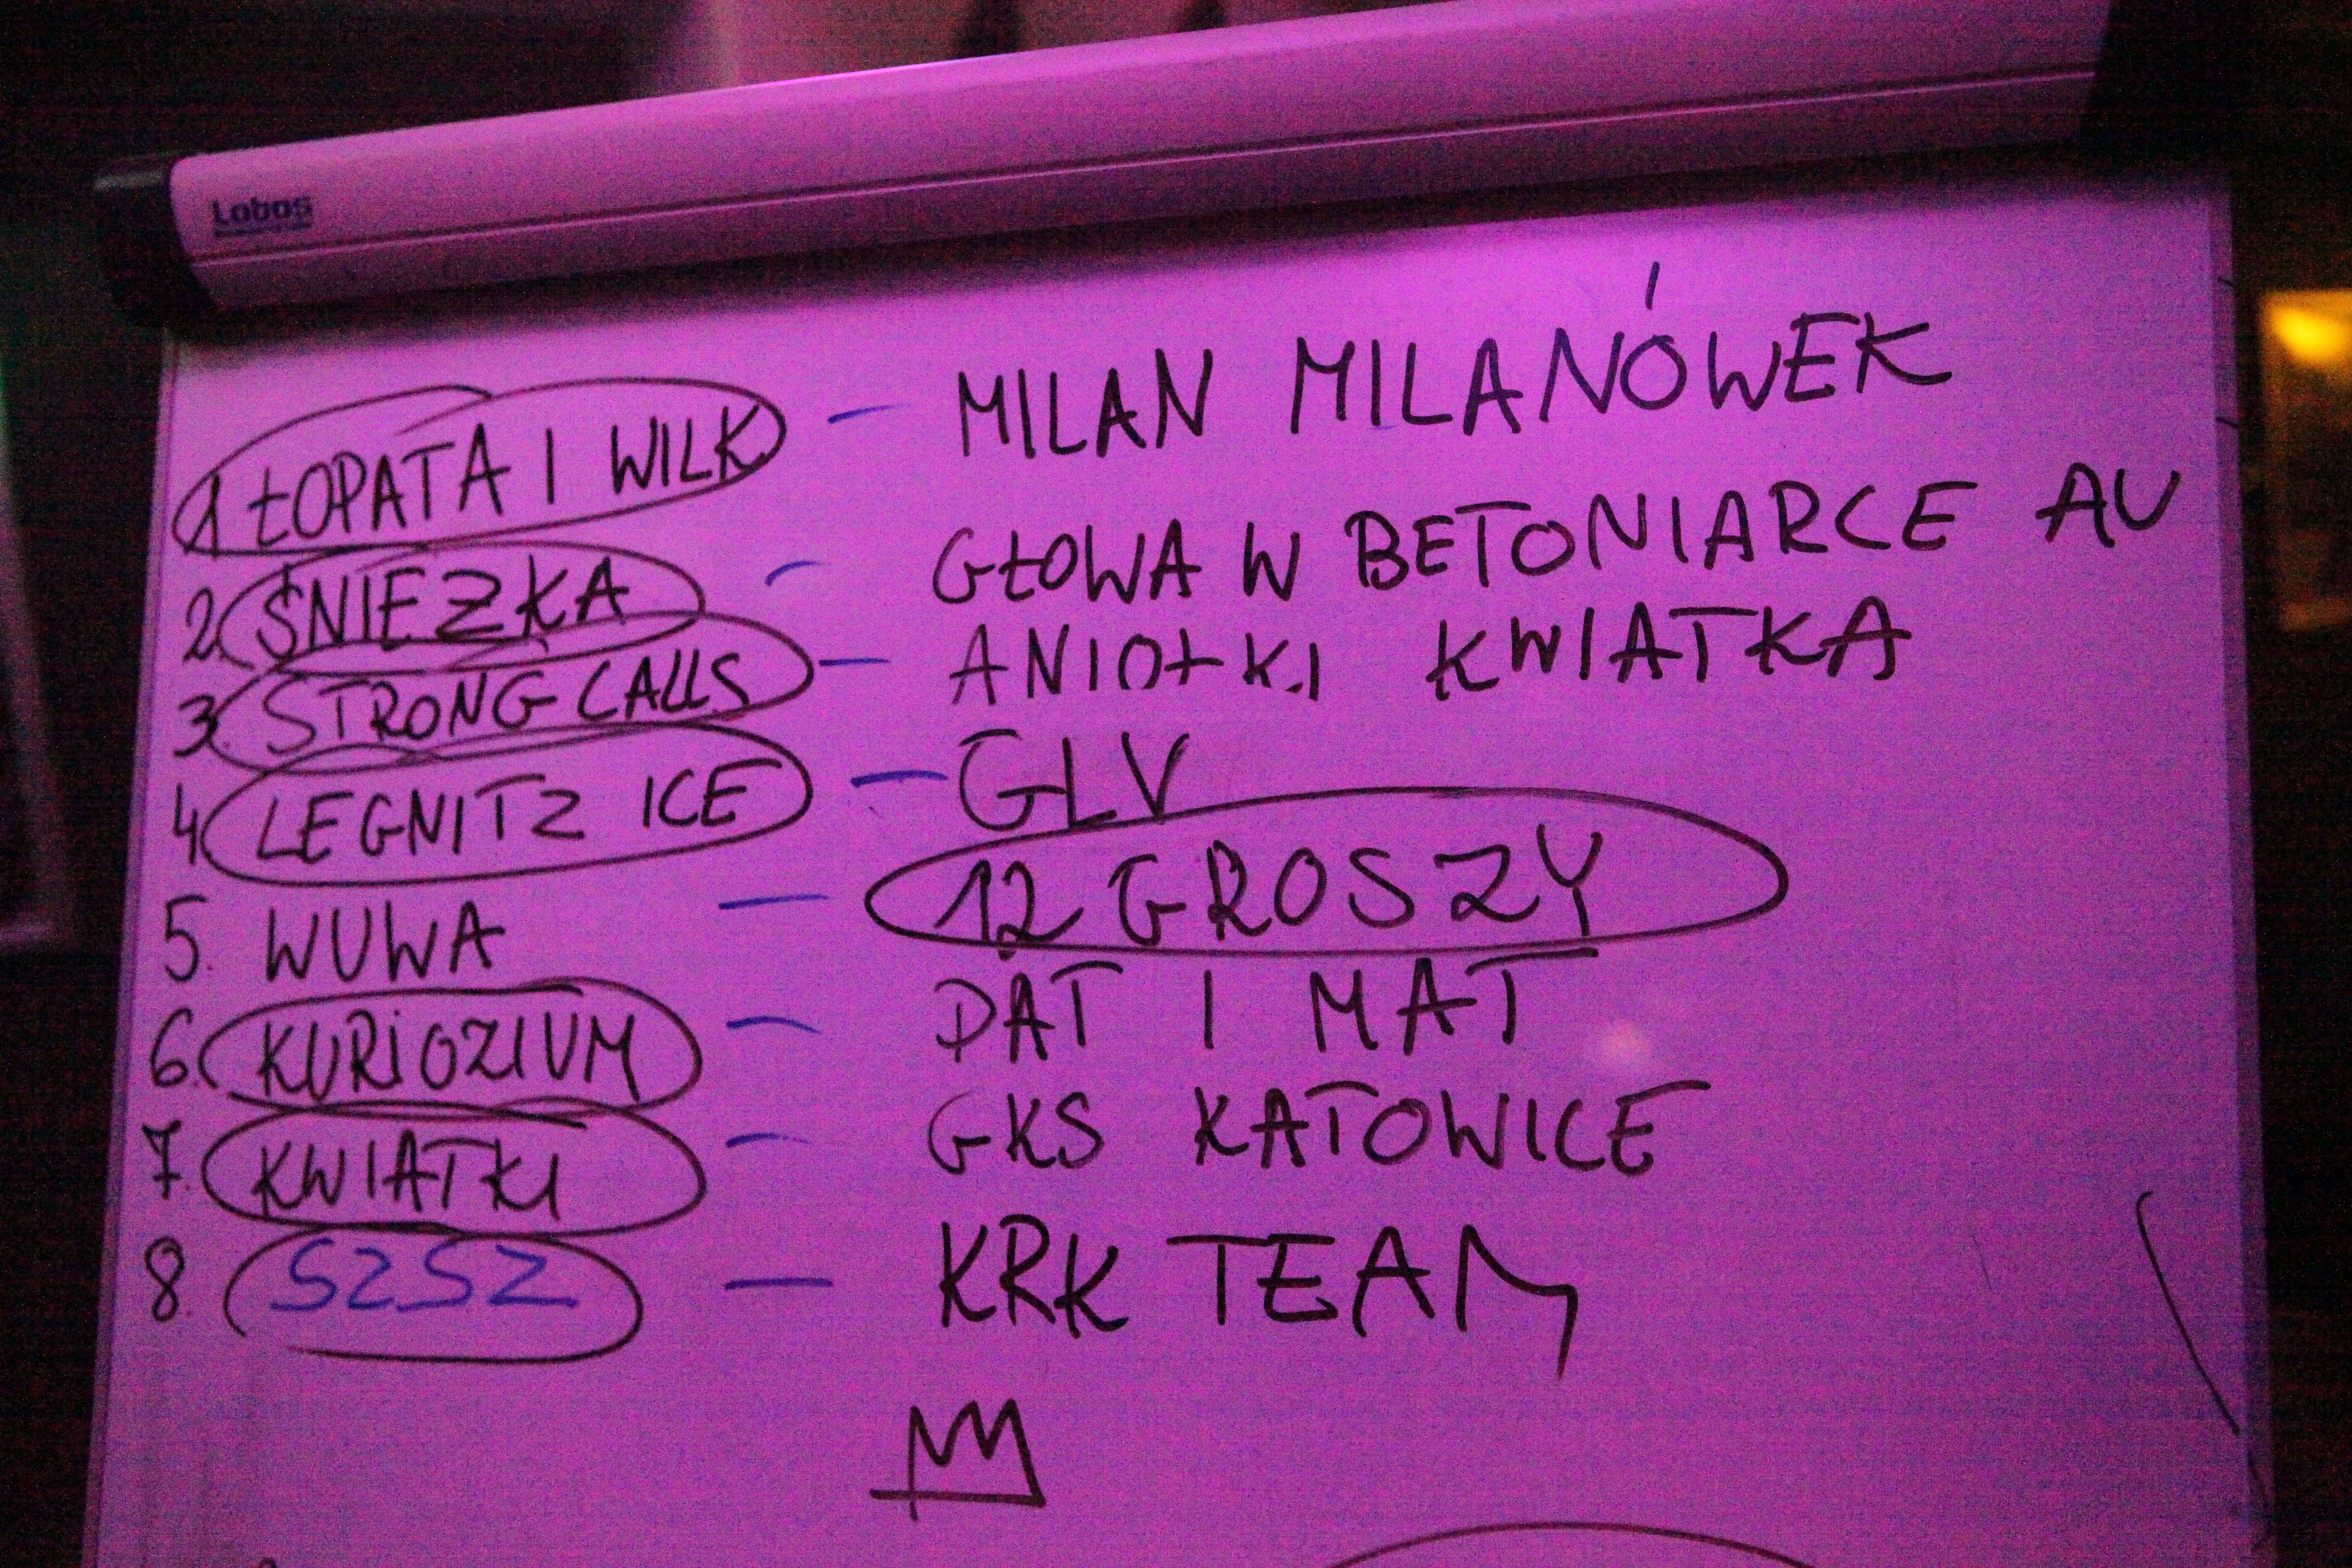 Lobos
1 ŁOPATA I WILK – MILAN MILANÓWEK
2. ŚNIEŻKA – GŁOWA W BETONIARCE AU
3. STRONG CALLS – ANIOŁKI KWIATKA
4 LEGNITZ ICE – GLV
5. WUWA – 12 GROSZY
6. KURiOZIUM – DAT I MAT
7. KWIATKI – GKS KATOWICE
8. SZSZ – KRK TEAM